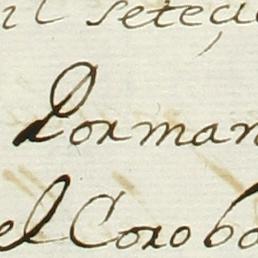 il seteci
Por man
el Corobo